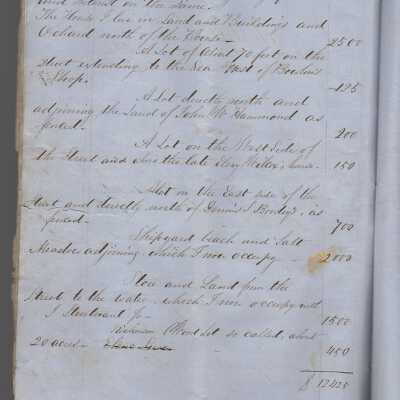 and interest on the same.
The House I live in Land and Buildings and
Orchard north of the House - 2500
A Lot of About 70 feet on the
Street extending to the Sea West of
Shop. - 125
A Lot directly north and
adjoining the Land of John W. Hammond as
fenced. 200
A Lot on the West side of
the Street and above the late house - 150
A lot on the East side of the
Street and directly north of as
fenced - 700
Shipyard beach and Salt
Meadow adjoining which I now occupy - 2000
Store and Land from the
Street to the water which I now occupy with
I Sturtevant Jr - 1500
Lot so called, about
20 acres - 450
$ 12425